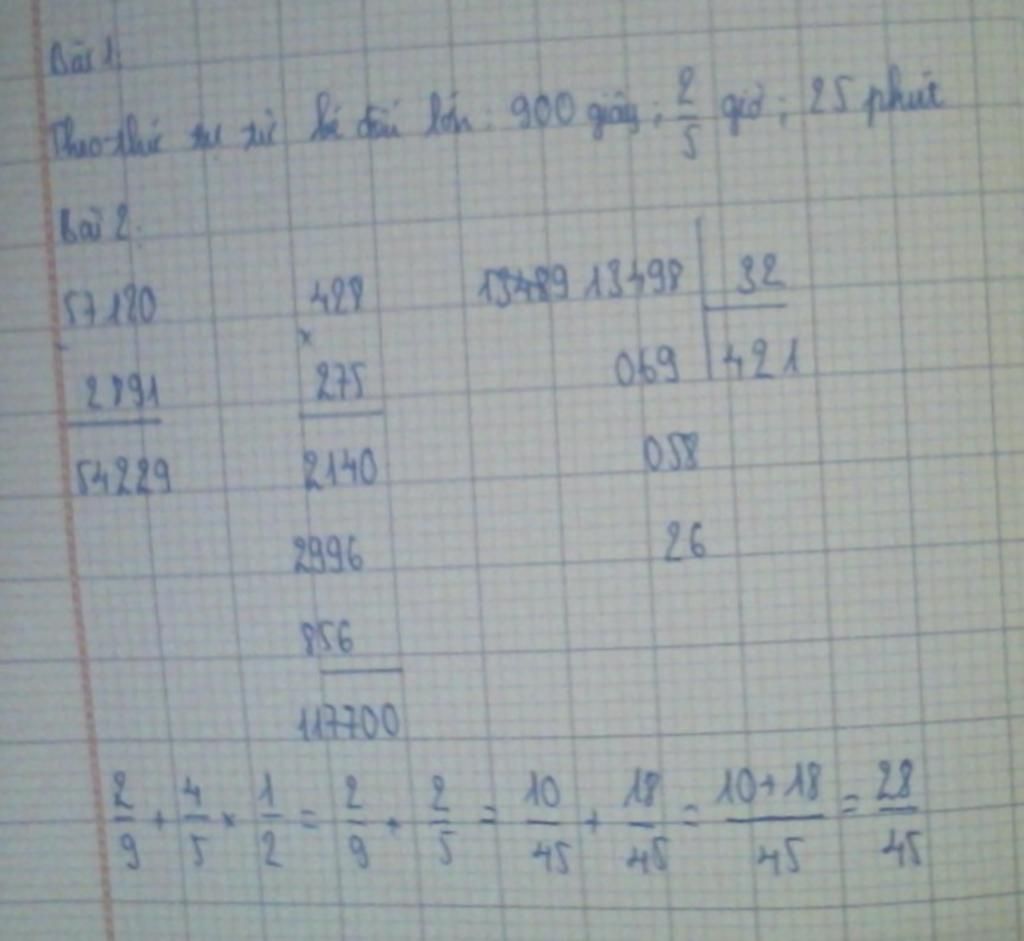 Bài 1:
Theo thứ tự từ bé đến lớn: 900 giây; 2/5 giờ; 25 phút
Bài 2:
57120
-
2891
54229
428
×
275
2140
2996
856
117700
13489 13498 | 32
069 | 421
058
26
2/9 + 4/5 × 1/2 = 2/9 + 2/5 = 10/45 + 18/45 = 10+18/45 = 28/45